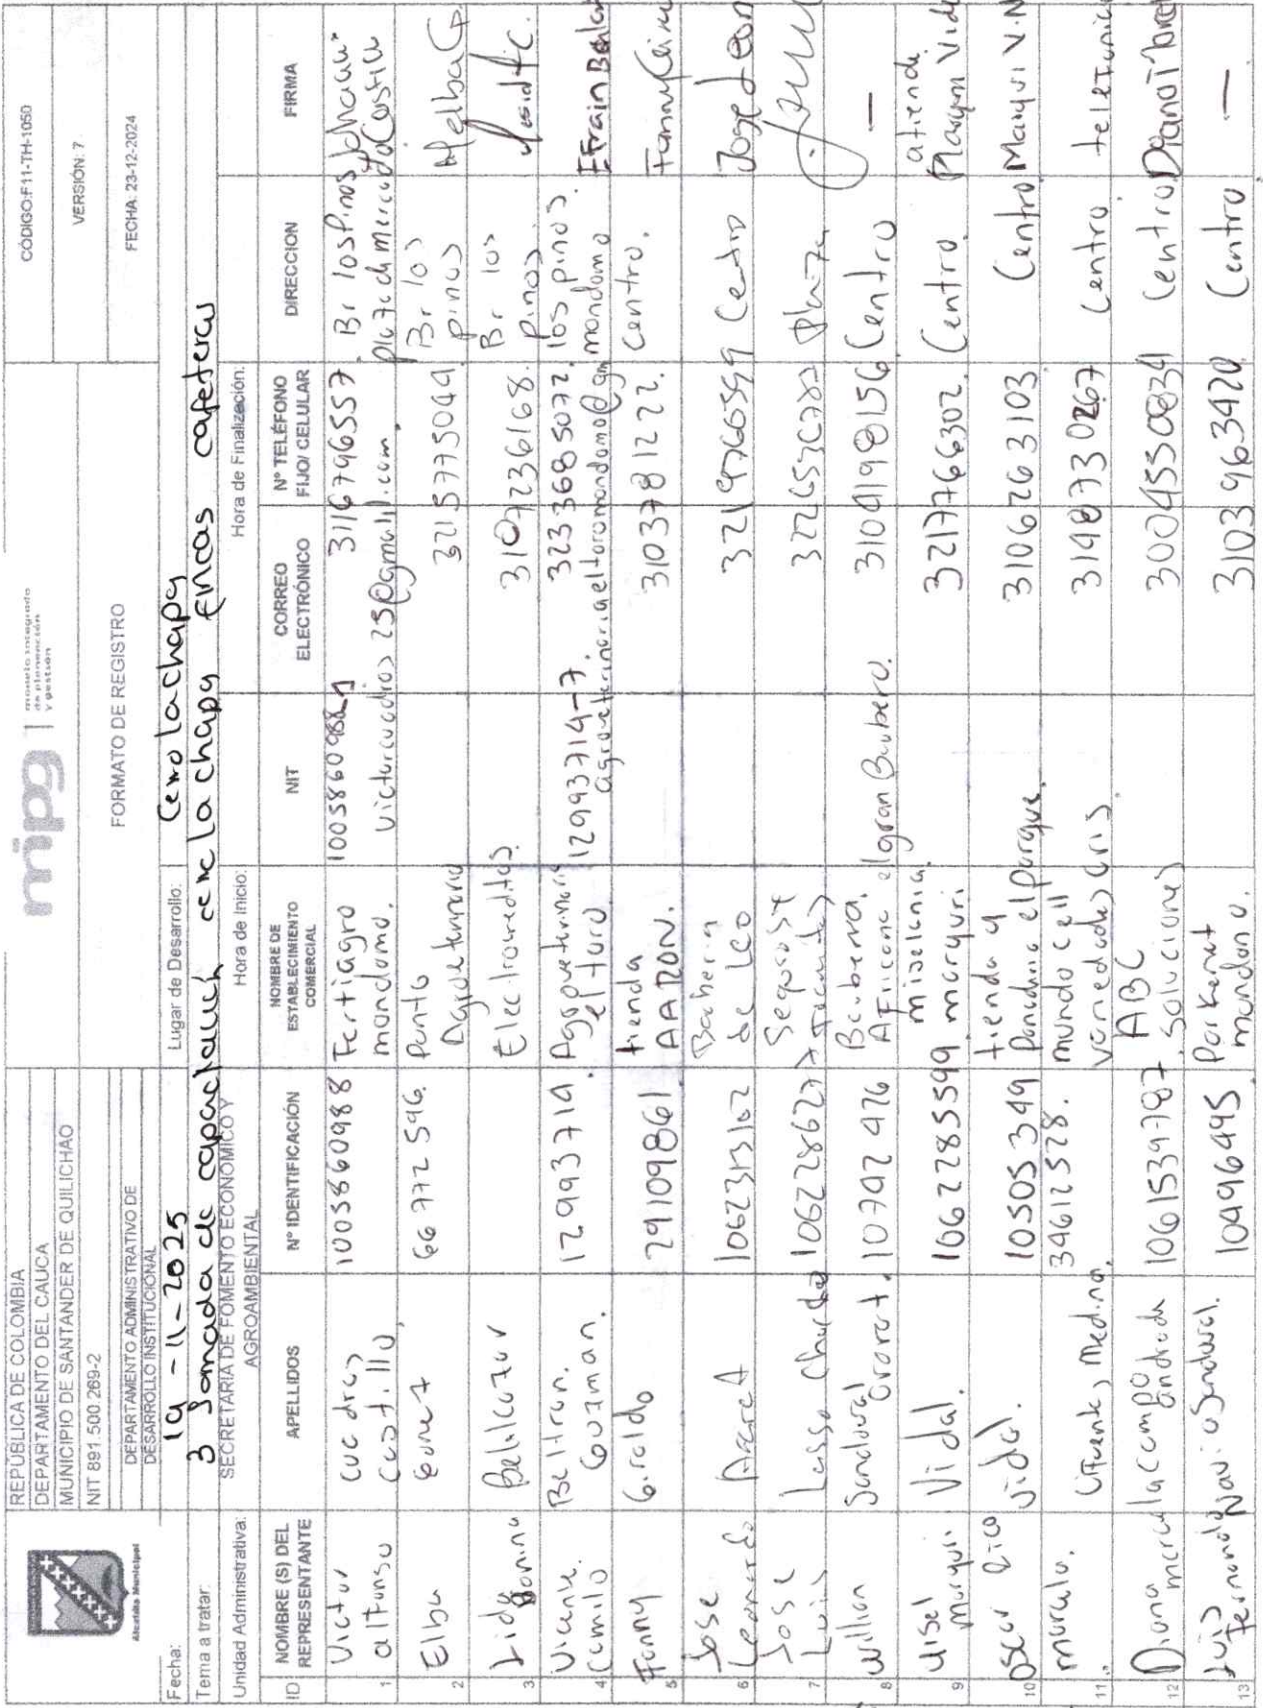 REPÚBLICA DE COLOMBIA
DEPARTAMENTO DEL CAUCA
MUNICIPIO DE SANTANDER DE QUILICHAO
NIT 891.500.269-2
DEPARTAMENTO ADMINISTRATIVO DE
DESARROLLO INSTITUCIONAL
Alcaldía Municipal
mipg
modelo integrado
de planeación
y gestión
FORMATO DE REGISTRO
CÓDIGO:F11-TH-1050
VERSIÓN: 7
FECHA: 23-12-2024
Fecha: 19 - 11 - 2025 Lugar de Desarrollo: Cerro la chapa
Tema a tratar: 3 Jornada de cerro la chapa fincas cafeteras
Unidad Administrativa: SECRETARIA DE FOMENTO ECONÓMICO Y AGROAMBIENTAL Hora de Inicio: Hora de Finalización:
ID NOMBRE (S) DEL REPRESENTANTE APELLIDOS Nº IDENTIFICACIÓN NOMBRE DE ESTABLECIMIENTO COMERCIAL NIT CORREO ELECTRÓNICO Nº TELÉFONO FIJO/ CELULAR DIRECCION FIRMA
1 Victor alfonso cuadros castillo 1005860988 Fertiagro mondomo. victorcuadros25@gmail.com 3116796557 Br los Pinos plaza de mercado
2 Elba Gomez 66772596. Punto Agroveterinario 3215775049 Br los pinos Melba G
3 Belalcazar Electrocreditos. 3107236168. Br los pinos.
4 Vicente Camilo Beltran. Guzman. 12993714. Agroveterinaria el toro 12993714-7. agroveterinariaeltoromondomo@gm 3233685072. los pinos. mondomo Efrain
5 Fanny Giraldo 29109861. tienda AARON. 3103781222. Centro. Fanny
6 Jose Leonardo 1062313162 de Leo 3219766599 Centro Jose Leon
7 Jose Luis Lasso 1062286277 Plaza
8 Willian Sandoval 10792476 el gran Barbero. 3104198156 Centro —
9 Uisel Maryuri Vidal. 1062285599 miscelania. maryuri. 3217766302. Centro. atiende
10 Oscar Vidal. 10505349 tienda y Panaderia el parque. 3106263103 Centro. V.N
11 Cifuentes Medina. 34612528. mundo cell variedades cris 3148730267 Centro. telefonica
12 Diana andrade 1061539787. ABC soluciones 3004550834 Centro
13 Luis Fernando Sandoval. 10496495. Parkenat mondomo. 3103963420 Centro —